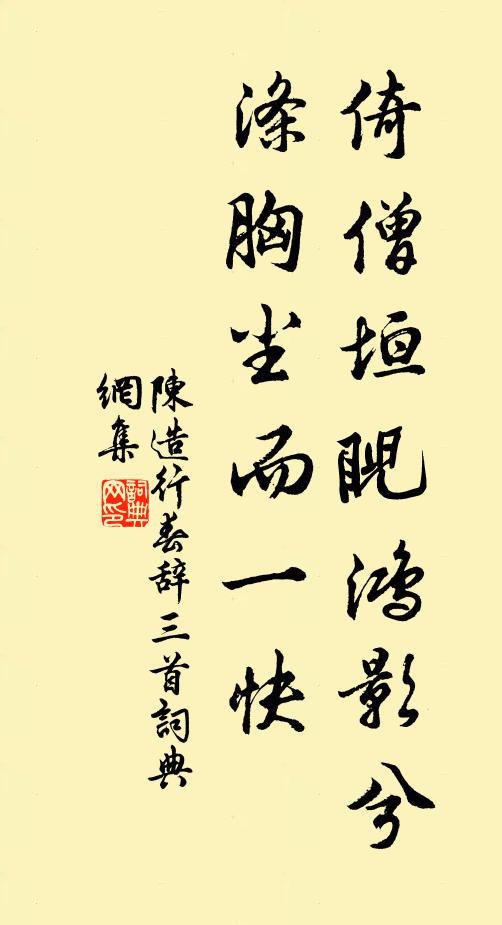 倚僧垣睨鸿影兮
涤胸尘而一快
陳造行春辞三首詞典
網集
詞典網印